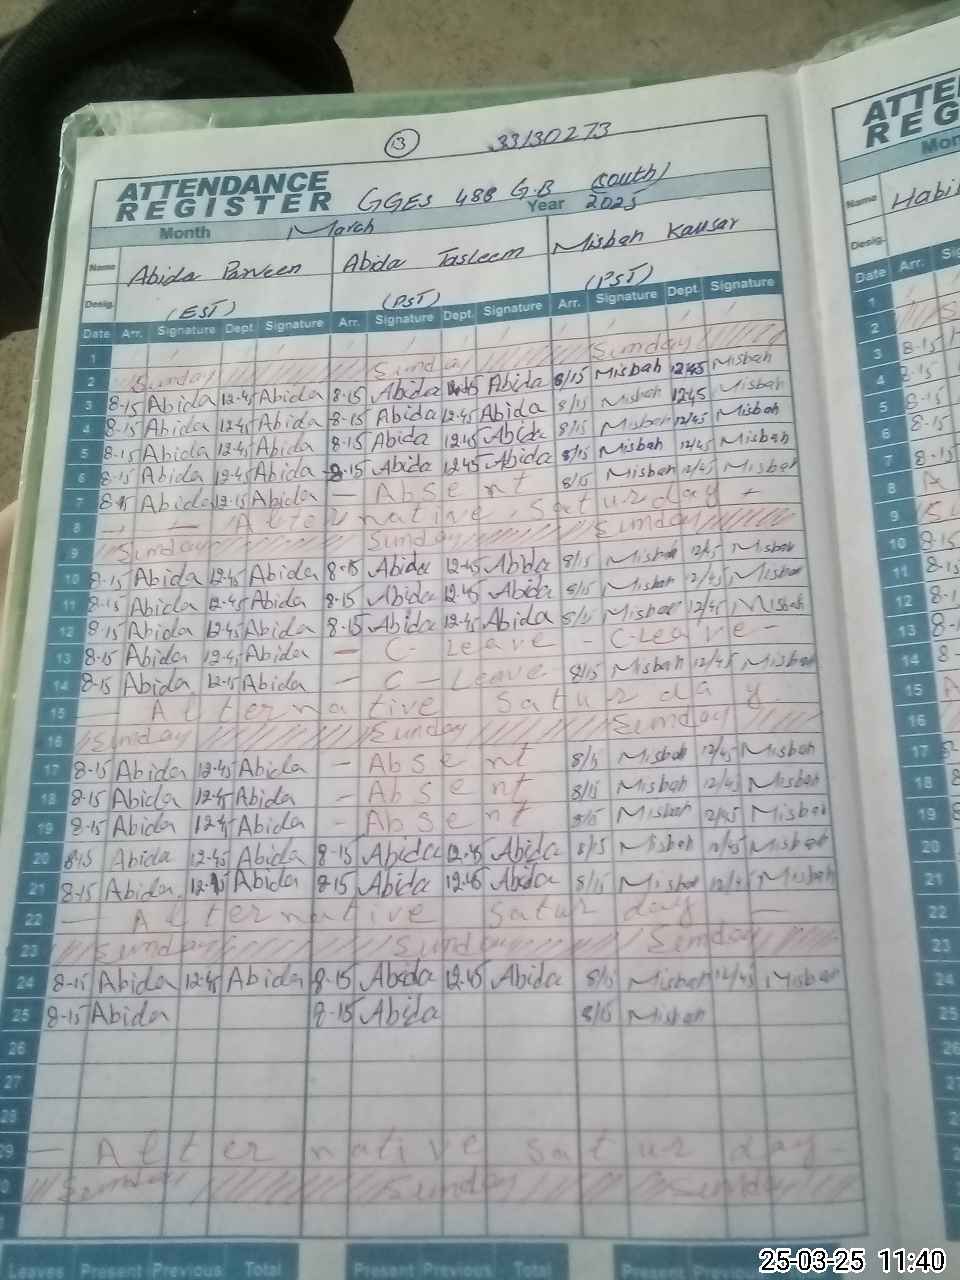 13 33130273
ATTENDANCE REGISTER GGES 488 G.B (South)
Month March Year 2025
Name Abida Parveen Abida Tasleem Misbah Kausar
Desig. (EST) (PST) (PST)
Date Arr. Signature Dept. Signature Arr. Signature Dept. Signature Arr. Signature Dept. Signature
1
2 Sunday Sunday Sunday
3 8-15 Abida 12-45 Abida 8-15 Abida Abida 8/15 Misbah 1245 Misbah
4 8-15 Abida 12-45 Abida 8-15 Abida 12-45 Abida 8/15 Misbah 1245 Misbah
5 8-15 Abida 12-45 Abida 8-15 Abida 12-45 Abida 8/15 Misbah 12/45 Misbah
6 8-15 Abida 12-45 Abida 8-15 Abida 1245 Abida 8/15 Misbah 12/45 Misbah
7 8-15 Abida 12-15 Abida - Absent 8/15 Misbah 12/45 Misbah
8 - - Alternative Saturday -
9 Sunday Sunday Sunday
10 8-15 Abida 12-45 Abida 8-15 Abida 12-45 Abida 8/15 Misbah 12/45 Misbah
11 8-15 Abida 12-45 Abida 8-15 Abida 12-45 Abida 8/15 Misbah 12/45 Misbah
12 8-15 Abida 12-45 Abida 8-15 Abida 12-45 Abida 8/15 Misbah 12/45 Misbah
13 8-15 Abida 12-45 Abida - C- Leave - C-Leave -
14 8-15 Abida 12-15 Abida - C - Leave 8/15 Misbah 12/45 Misbah
15 - Alternative Saturday
16 Sunday Sunday Sunday
17 8-15 Abida 12-45 Abida - Absent 8/15 Misbah 12/45 Misbah
18 8-15 Abida 12-45 Abida - Absent 8/15 Misbah 12/45 Misbah
19 8-15 Abida 12-45 Abida - Absent 8/15 Misbah 12/45 Misbah
20 8-15 Abida 12-45 Abida 8-15 Abida 12-45 Abida 8/15 Misbah 12/45 Misbah
21 8-15 Abida 12-45 Abida 8-15 Abida 12-45 Abida 8/15 Misbah 12/45 Misbah
22 - Alternative Saturday -
23 Sunday Sunday Sunday
24 8-15 Abida 12-45 Abida 8-15 Abida 12-45 Abida 8/15 Misbah 12/45 Misbah
25 8-15 Abida 8-15 Abida 8/15 Misbah
26
27
28
29 - Alternative Saturday -
Sunday Sunday Sunday
Leaves Present Previous Total Present Previous Total Present Previous Total
Name Habi
Desig.
Date Arr.
1
2
3 8-15
4 8-15
5 8-15
6 8-15
7 8-15
8 A
9
10 8-15
11
12
13
14
15 A
16
17
18
19
20
21
22
23
24
25
25-03-25 11:40